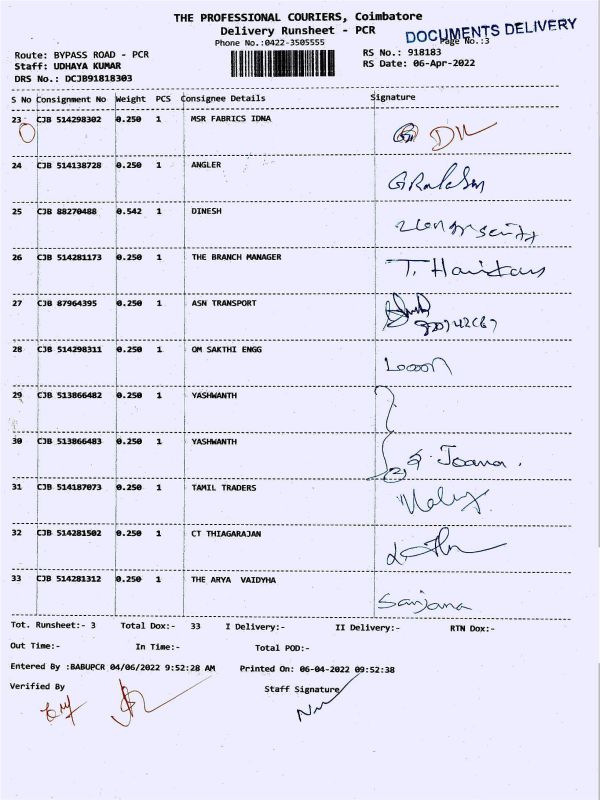 THE PROFESSIONAL COURIERS, Coimbatore
Delivery Runsheet - PCR
DOCUMENTS DELIVERY
Phone No.:0422-3505555
Page No.:3
Route: BYPASS ROAD - PCR
RS No.: 918183
Staff: UDHAYA KUMAR
RS Date: 06-Apr-2022
DRS No.: DCJB91818303
S No Consignment No Weight PCS Consignee Details Signature
23 CJB 514298302 0.250 1 MSR FABRICS IDNA
24 CJB 514138728 0.250 1 ANGLER
25 CJB 88270488 0.542 1 DINESH
26 CJB 514281173 0.250 1 THE BRANCH MANAGER
27 CJB 87964395 0.250 1 ASN TRANSPORT
28 CJB 514298311 0.250 1 OM SAKTHI ENGG
29 CJB 513866482 0.250 1 YASHWANTH
30 CJB 513866483 0.250 1 YASHWANTH Joana.
31 CJB 514187073 0.250 1 TAMIL TRADERS
32 CJB 514281502 0.250 1 CT THIAGARAJAN
33 CJB 514281312 0.250 1 THE ARYA VAIDYHA Sanjana
Tot. Runsheet:- 3 Total Dox:- 33 I Delivery:- II Delivery:- RTN Dox:-
Out Time:- In Time:- Total POD:-
Entered By :BABUPCR 04/06/2022 9:52:28 AM Printed On: 06-04-2022 09:52:38
Verified By Staff Signature